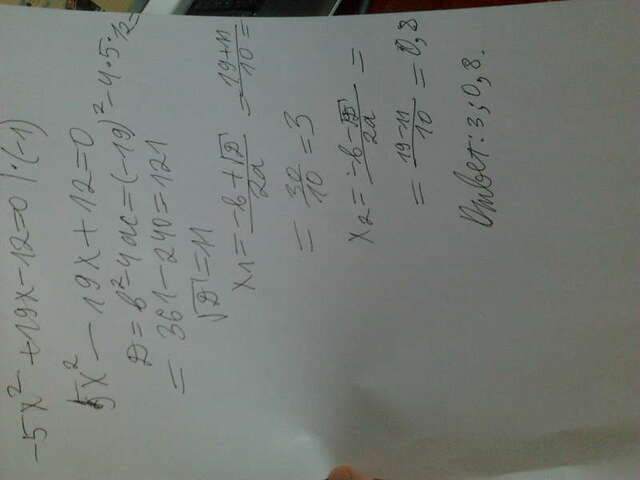 -5x² + 19x - 12 = 0 | · (-1)
5x² - 19x + 12 = 0
D = b² - 4ac = (-19)² - 4 · 5 · 12 =
= 361 - 240 = 121
√D = 11
x1 = -b + √D / 2a = 19 + 11 / 10 =
= 30 / 10 = 3
x2 = -b - √D / 2a =
= 19 - 11 / 10 = 0,8
Ответ: 3; 0,8.